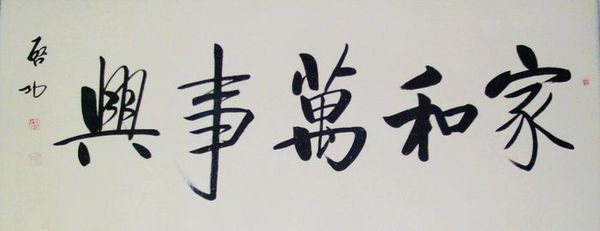 家和萬事興
啓功